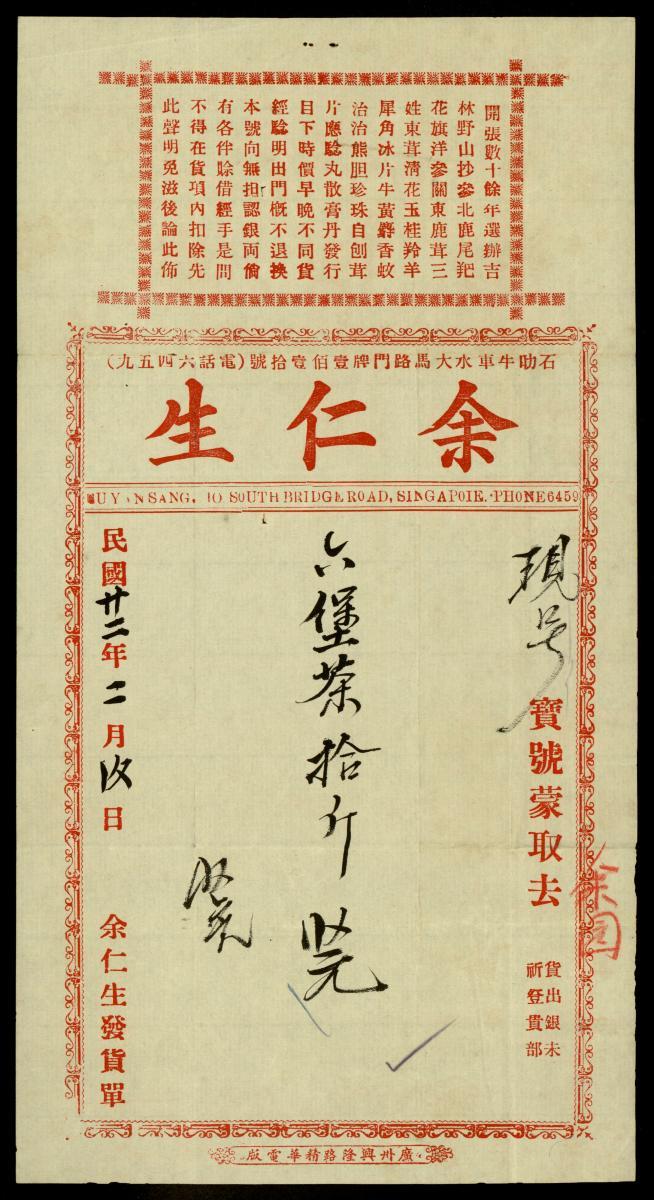 開張數十餘年選辦吉
林野山抄參北鹿尾羓
花旗洋參關東鹿茸三
姓東茸淸花玉桂羚羊
犀角冰片牛黃麝香蚊
治治熊胆珍珠自刨茸
片應騐丸散膏丹發行
目下時價早晚不同貨
經騐明出門概不退換
本號向無担認銀両倘
有各伴賒借經手是問
不得在貨項內扣除先
此聲明免滋後論此佈
石叻牛車水大馬路門牌壹佰壹拾號(電話六四五九)
余仁生
EU YAN SANG, 110 SOUTH BRIDGE ROAD, SINGAPORE. PHONE 6459
現号 寶號蒙取去
貨出銀未
祈登貴部
六堡茶拾斤
民國廿二年二月 日 余仁生發貨單
廣州興隆路精華電版